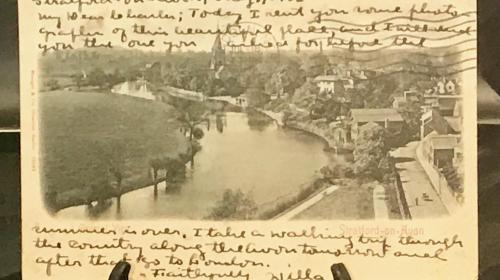 My Dear Charles; Today I sent you some photo-
graphs of this beautiful place, and I will send
you the one you asked for, before the
Stratford-on-Avon
summer is over. I take a walking trip through
the country along the Avon tomorrow and
after that go to London.
Faithfully Willa